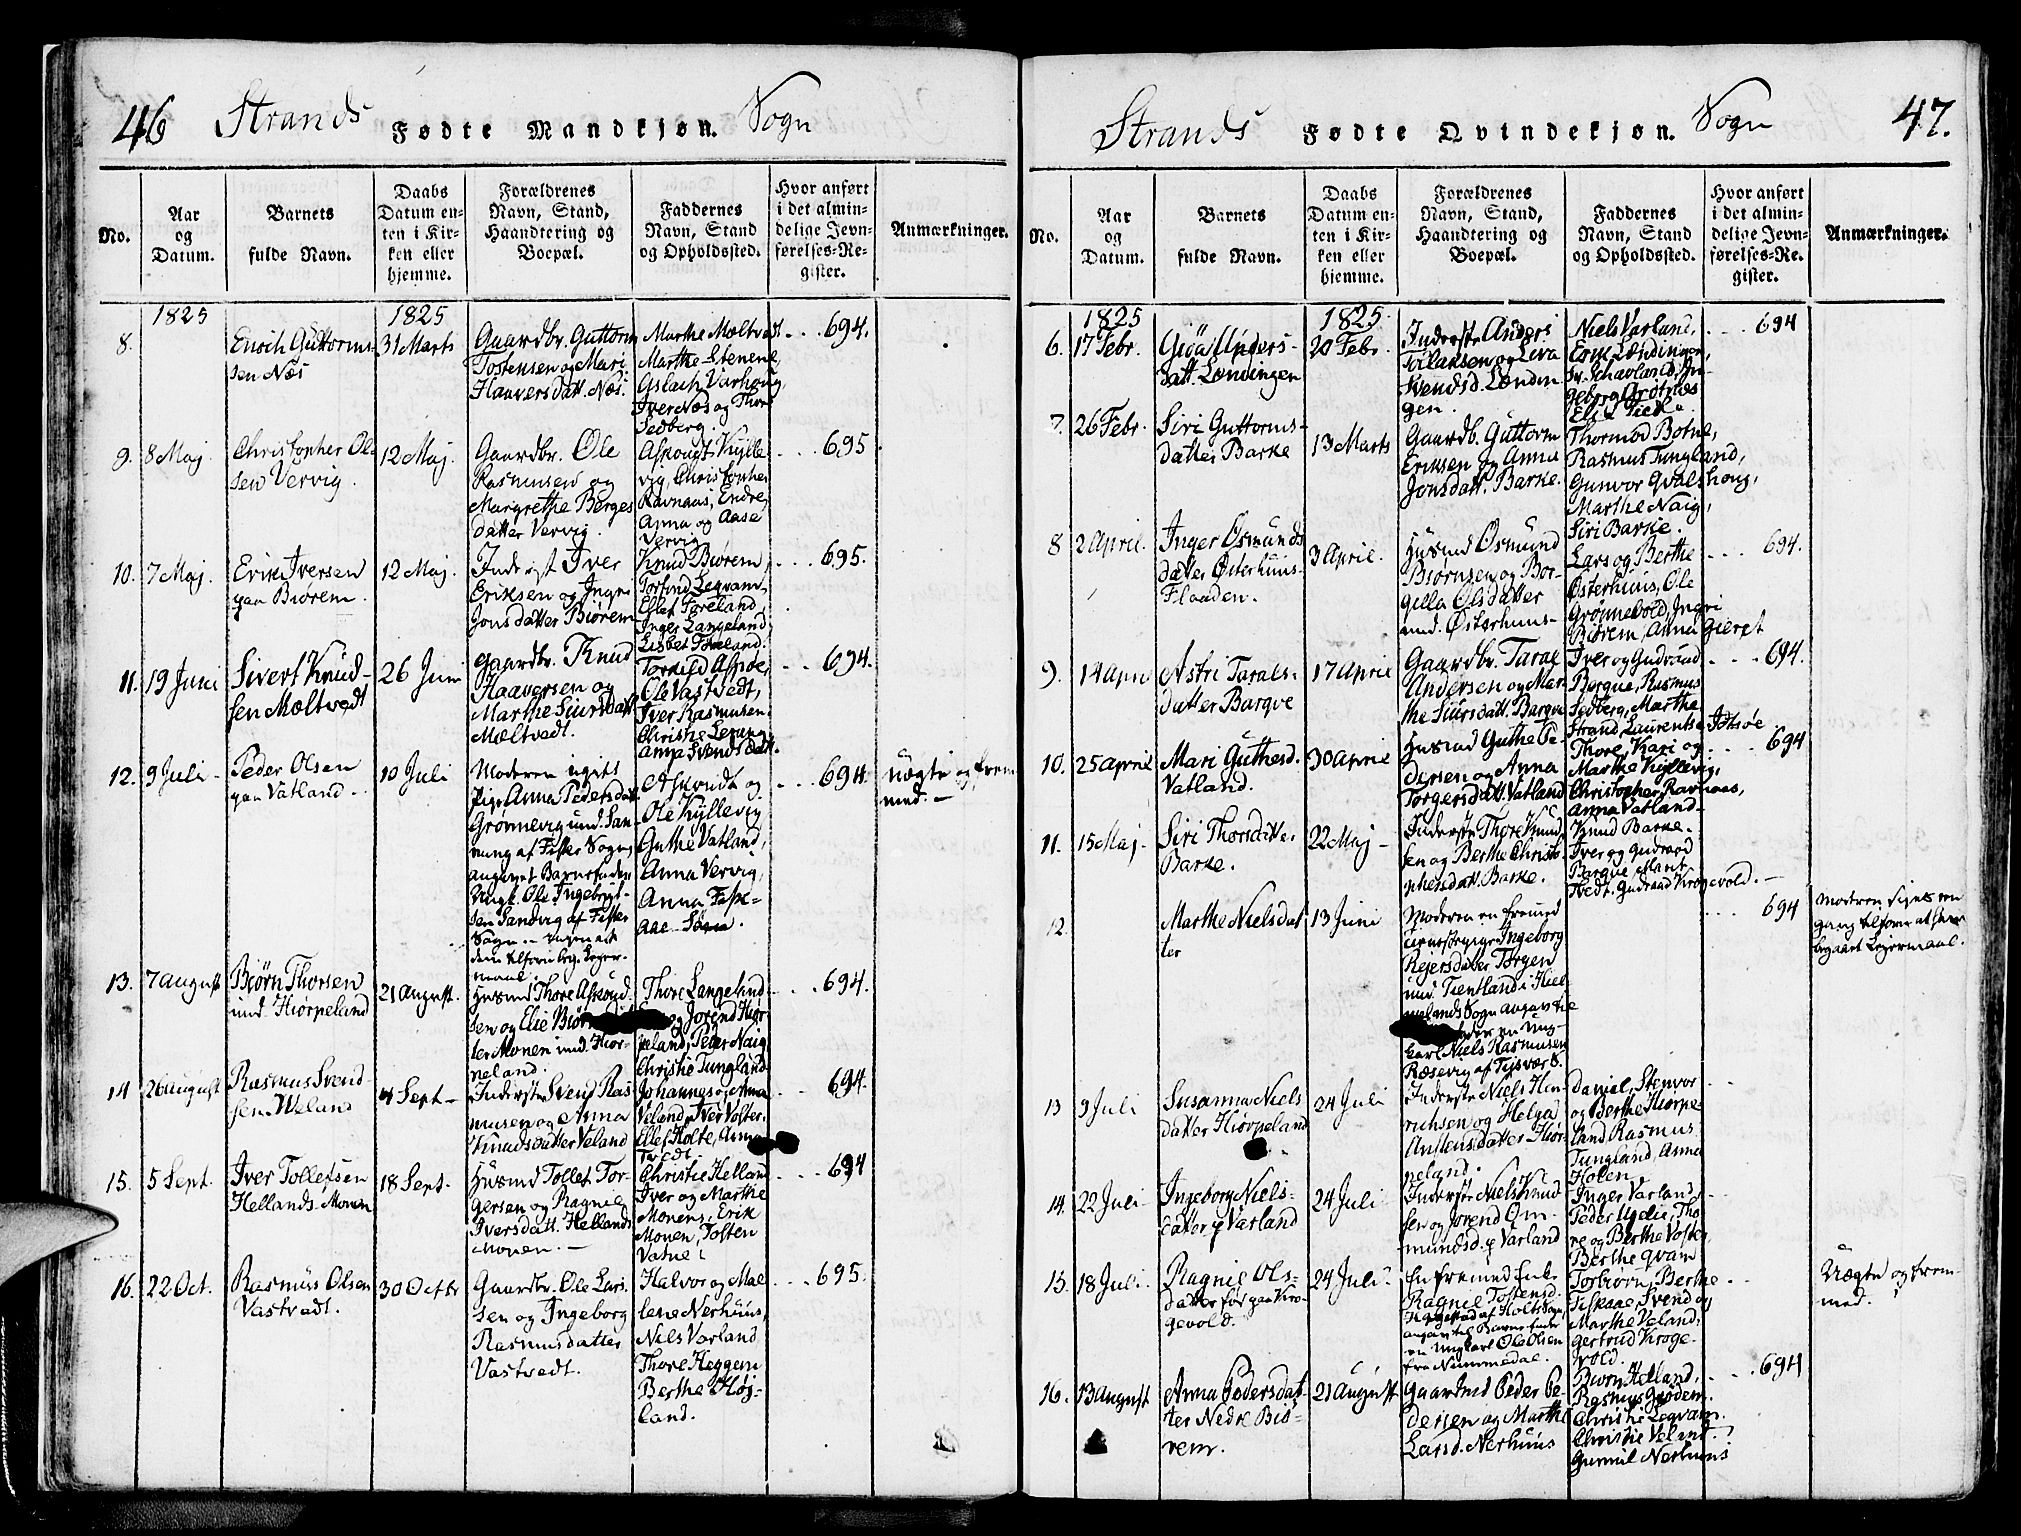 46 Strands Fødte Mandkjøn. Sogn
No.
Aar
og
Datum.
Barnets
fulde Navn.
Daabs
Datum en-
ten i Kir-
ken eller
hjemme.
Forældrenes
Navn, Stand,
Haandtering og
Boepæl.
Faddernes
Navn, Stand
og Opholdssted.
Hvor anført
i det almin-
delige Jevn-
førelses-Re-
gister.
Anmærkninger.
1825
1825
8.
Enoch Guttorms-
sen Næs
31 Marts
Gaardbr. Guttorm
Tostensen og Mari
Haaversdatt. Næs.
Marthe Mæltvedt
Marthe Stenene
Aslach Varhoug,
Iver Næs og Thore
Sedberg.
694.
9.
8 Maj.
Christopher Ol-
sen Vervig.
12 Maj.
Gaardbr. Ole
Rasmusen og
Margrethe Berges
datter Vervig.
Askougt Kylle-
vig, Christopher
Ravnaas, Endre,
Anna og Aase
Vervig
695
10.
7 Maj.
Erik Iversen
paa Biørem.
12 Maj.
Inderst Iver
Eriksen og Ingri
Jonsdatter Biørem
Knud Biørem,
Torfind Legvam,
Ellef Føreland
Inger Langeland
Lisbet Føreland.
695.
11.
19 Juni
Sivert Knud-
sen Mæltvedt
26 Juni
Gaardbr. Knud
Haaversen og
Marthe Siursdatt.
Mæltvedt.
Torkild Aspøe,
Ole Vastvedt,
Iver Rasmusen
Christie Lerang
Anna Svendsdatt.
694.
12.
9 Juli
Peder Olsen
paa Vatland.
10 Juli
Moderen ugift
Pige Anna Pedersdatt.
Grønnevig und. San-
af Fister Sogn,
angivet Barnefader
Ungk. Ole Ingebrigt-
sen Sandvig af Fister
Sogn.
Askoudt og
Ole Kyllevig
Guthe Vatland,
Anna Vervig,
Anna Fisk-
aae
694.
Uægte og frem-
med.
13.
7 August
Biørn Thorsen
und. Hiørpeland
21 August.
Husmd Thore Askoud-
sen og Elie
ter Monen und. Hiør-
peland.
Thore Langeland
og Jorend Hiør-
peland, Peder Naig
Christie Tungland
694.
14
26 August
Rasmus Svend-
sen Weland
4 Sept
Inderste Svend Ras-
musen og Anna
Knudsdatter Veland
Johannes og Anna
Veland, Iver Volster
Ellef Holte, Anna
Tvedt.
694.
15.
5 Sept.
Iver Tollefsen
Hellands-Monen
18 Sept.
Husmd Tollef Tor-
gersen og Ragnil
Iversdatt. Hellands
Monen.
Christie Helland
Iver og Marthe
Monens, Erik
Monen, Tosten
Vatne
694
16.
22 Oct.
Rasmus Olsen
Vastvedt.
30 Octbr
Gaardbr. Ole Lars-
sen og Ingeborg
Rasmusdatter
Vastvedt.
Halvor og Mal-
lene Nerhuus,
Niels Varland
Thore Heggem
Berthe Høj-
land.
695.
Strands Fødte Qvindekjøn. Sogn 47.
No.
Aar
og
Datum.
Barnets
fulde Navn.
Daabs
Datum en-
ten i Kir-
ken eller
hjemme.
Forældrenes
Navn, Stand,
Haandtering og
Boepæl.
Faddernes
Navn, Stand
og Opholdssted.
Hvor anført
i det almin-
delige Jevn-
førelses-Re-
gister.
Anmærkninger.
1825
1825.
6.
17 Febr.
Giøa Anders-
datt. Lændingen
20 Febr.
Inderste Anders
Tollaksen og Siva
Svendsd. Lændin-
gen.
Niels Varland,
Erik Lændingen,
Sv. Schavland, In-
geborg Grøtnes
694
7.
26 Febr.
Siri Guttorms-
datter Barke
13 Marts
Gaardb. Guttorm
Eriksen og Anna
Jonsdatt. Barke.
Thormod Botne,
Rasmus Tungland,
Gunvor Qvals-
houg,
Marthe Naig,
Siri Barke.
8
2 April.
Inger Osmunds-
datter Østerhuus-
Flaaden.
3 April.
Husmd Osmund
Biørnsen og Bor-
gilla Olsdatter
und. Østerhuus-
Lars og Berthe
Østerhuus, Ole
Grønnevold, Ingri
Biørem, Anna Gierct
694.
9.
14 April
Astri Tarals-
datter Barqve
17 April
Gaardbr. Taral
Andersen og Mar-
the Siursdatt. Barqve
Iver og Gudraad
Barqve, Rasmus
Sedberg, Marthe
Strand, Laurentse Idsøe
694.
10.
25 April
Mari Guthesd.
Vatland.
30 April
Husmd Guthe Pe-
dersen og Anna
Torgersdatt. Vatland
Thore, Kari og
Marthe Kyllevig,
Christopher Ravnaas,
Anna Vatland
694
11.
15 Maj.
Siri Thorsdatter
Barke.
22 Maj
Inderste Thore Knud-
sen og Berthe Christo-
phersdatt. Barke.
Knud Barke.
Iver og Gudraad
Barqve, Marit
Tvedt, Gudraad Krogevold.
12.
Marthe Nielsdat-
ter
13 Juni
Moderen en fremd
Ingeborg
Rejersdatter Torgen
und. Tientland i Hiel-
melands Sogn angav til
en Ung-
karl Niels Rasmusen
Ræsevig af Tysvær S.
694
Moderen sigtes en
gang tilforn at have
begaaet Lejermaal.
13
9 Juli
Susanna Niels-
datter Hiørpeland
24 Juli
Inderste Niels Hen-
richsen og Helga
Anstensdatter Hiør-
peland.
Daniel, Stenvor
og Berthe Hiørpe-
land Rasmus
Tungland, Anna
Holen
14.
22 Juli
Ingeborg Niels-
datter p Varland
24 Juli
Inderste Niels Knud-
sen og Jorend Om-
mundsd. p Varland
Inger Varland
Peder Ydie, Tho-
re og Berthe Voster
Berthe Qvam
15.
18 Juli
Ragnil Ols-
datter fød paa Kro-
gevold.
24 Juli
En fremmed Enke
Ragnil Tostensd.
af Holt Sogn,
angav til Barnefader
en Ungkarl Ole Olsen
fra Nummedal.
Torbiørn, Berthe
Fiskaae, Svend og
Marthe Veland,
Gertrud Kroge-
vold.
Uægte og frem-
med.
16.
13 August
Anna Pedersdat-
ter Nedre Biø-
rem.
21 August
Gaardmd Peder Pe-
dersen og Marthe
Larsd. Nerhuus
Biørn Helland,
Rasmus Giødem,
Christie Legvam
Christie Veland
Gunnil Nerhuus
694